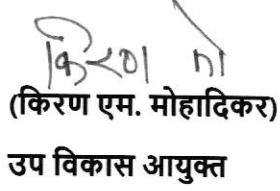 किरण मो
(किरण एम. मोहादिकर)
उप विकास आयुक्त